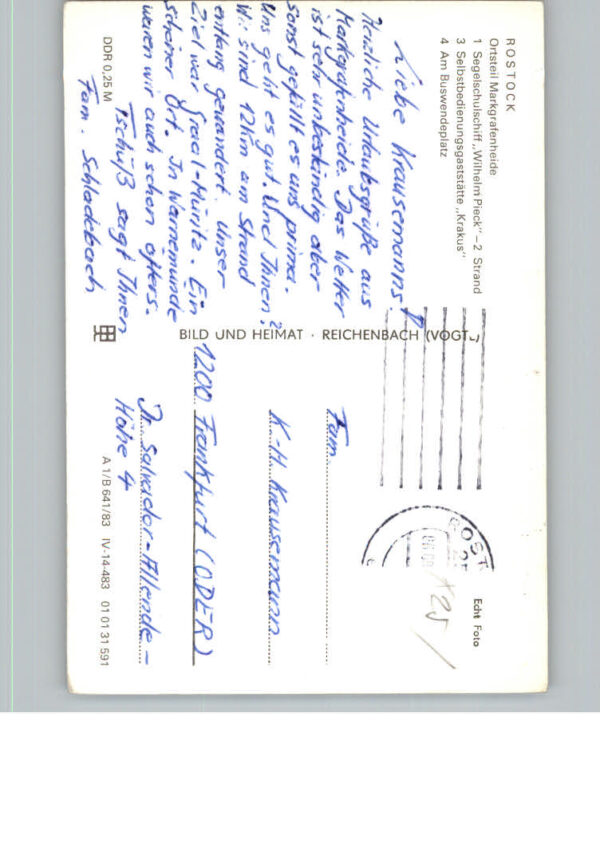 ROSTOCK
Ortsteil Markgrafenheide
1 Segelschulschiff „Wilhelm Pieck" – 2 Strand
3 Selbstbedienungsgaststätte „Krakus"
4 Am Buswendeplatz
Liebe Krausemanns!
Herzliche Urlaubsgrüße aus
Markgrafenheide. Das Wetter
ist sehr unbeständig aber
sonst gefällt es uns prima.
Uns geht es gut. Und Ihnen?
Wir sind 12km am Strand
entlang gewandert. Unser
Ziel war Graal-Müritz. Ein
schöner Ort. In Warnemünde
waren wir auch schon öfters.
Tschüß sagt Ihnen
Fam. Schladebach
DDR 0,25 M
BILD UND HEIMAT · REICHENBACH (VOGTL.)
ROST
25
Echt Foto
Fam.
K-H. Krausemann
1200 Frankfurt (ODER)
Dr. Salvador-Allende-
Höhe 4
A 1/B 641/83 IV-14-483 01 01 31 591